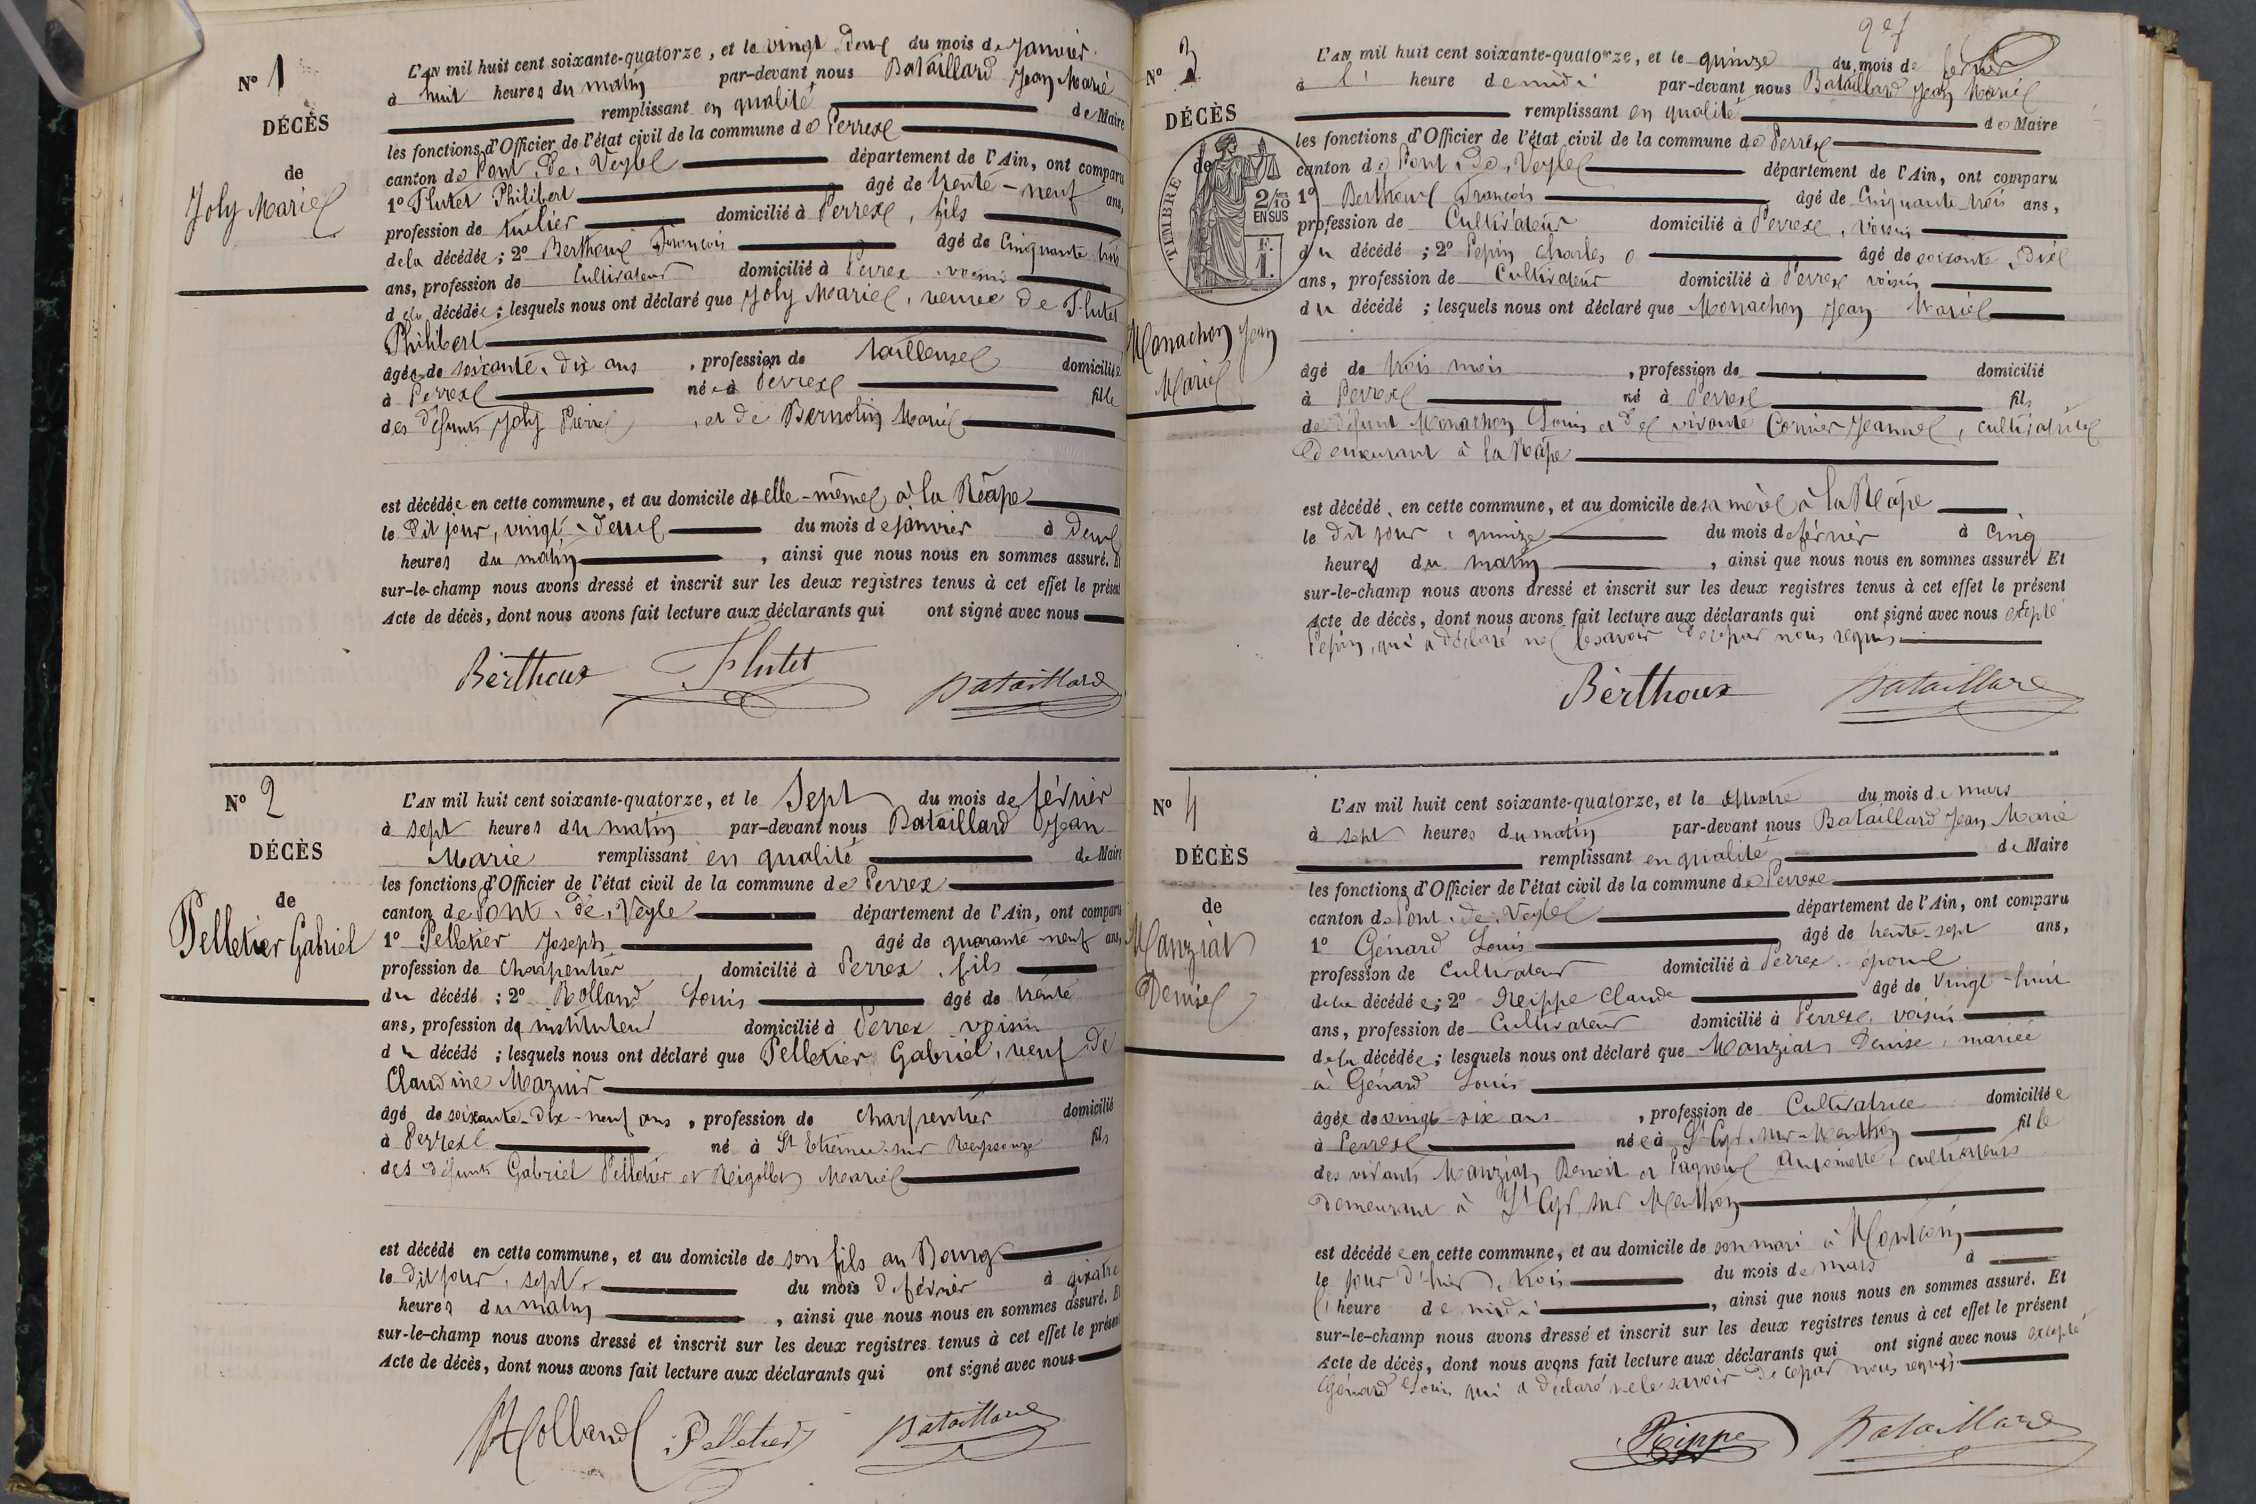 N° 1
DÉCÈS
de
Joly Marie
L'AN mil huit cent soixante-quatorze, et le vingt-deux du mois de Janvier
à huit heures du matin par-devant nous Bataillard Jean Marie
remplissant en qualité de Maire
les fonctions d'Officier de l'état civil de la commune de Perrex
canton de Pont-de-Veyle département de l'Ain, ont comparu
1° Flutet Philibert âgé de trente-neuf ans,
profession de tuilier domicilié à Perrex, fils
de la décédée; 2° Berthoux François âgé de Cinquante trois
ans, profession de Cultivateur domicilié à Perrex, voisin
de la décédée; lesquels nous ont déclaré que Joly Marie, veuve de Flutet
Philibert
âgée de soixante-dix ans, profession de tailleuse domiciliée
à Perrex née à Perrex fille
des défunts Joly Pierre, et de Bernolin Marie
est décédée en cette commune, et au domicile de elle-même à la Réape
le dit jour, vingt-deux du mois de janvier à deux
heures du matin, ainsi que nous nous en sommes assuré. Et
sur-le-champ nous avons dressé et inscrit sur les deux registres tenus à cet effet le présent
Acte de décès, dont nous avons fait lecture aux déclarants qui ont signé avec nous
Berthoux Flutet Bataillard
N° 2
DÉCÈS
de
Pelletier Gabriel
L'AN mil huit cent soixante-quatorze, et le Sept du mois de février
à sept heures du matin par-devant nous Bataillard Jean
Marie remplissant en qualité de Maire
les fonctions d'Officier de l'état civil de la commune de Perrex
canton de Pont-de-Veyle département de l'Ain, ont comparu
1° Pelletier Joseph âgé de quarante-neuf ans,
profession de charpentier domicilié à Perrex, fils
du décédé; 2° Rolland Louis âgé de trente
ans, profession de instituteur domicilié à Perrex voisin
du décédé; lesquels nous ont déclaré que Pelletier Gabriel, veuf de
Claudine Mazuir
âgé de soixante-dix-neuf ans, profession de charpentier domicilié
à Perrex né à St Etienne-sur Reyssouze fils
des défunts Gabriel Pelletier et Rigollet Marie
est décédé en cette commune, et au domicile de son fils au Bourg
le dit jour, sept du mois de février à quatre
heures du matin, ainsi que nous nous en sommes assuré. Et
sur-le-champ nous avons dressé et inscrit sur les deux registres tenus à cet effet le présent
Acte de décès, dont nous avons fait lecture aux déclarants qui ont signé avec nous
Rolland Pelletier Bataillard
N° 3
DÉCÈS
de
TIMBRE
2/10
EN SUS
F.
1.
Monachon Jean
Marie
L'AN mil huit cent soixante-quatorze, et le quinze du mois de février
à l' heure de midi par-devant nous Bataillard Jean Marie
remplissant en qualité de Maire
les fonctions d'Officier de l'état civil de la commune de Perrex
canton de Pont-de-Veyle département de l'Ain, ont comparu
1° Berthoux François âgé de Cinquante trois ans,
profession de Cultivateur domicilié à Perrex, voisin
du décédé; 2° Pepin Charles âgé de soixante-dix
ans, profession de Cultivateur domicilié à Perrex voisin
du décédé; lesquels nous ont déclaré que Monachon Jean Marie
âgé de trois mois, profession de domicilié
à Perrex né à Perrex fils
de défunt Monachon Louis et de vivante Cornier Jeanne, cultivatrice
demeurant à la Réape
est décédé en cette commune, et au domicile de sa mère à la Réape
le dit jour, quinze du mois de février à Cinq
heures du matin, ainsi que nous nous en sommes assuré. Et
sur-le-champ nous avons dressé et inscrit sur les deux registres tenus à cet effet le présent
Acte de décès, dont nous avons fait lecture aux déclarants qui ont signé avec nous excepté
Pepin, qui a déclaré ne le savoir de ce par nous requis
Berthoux Bataillard
N° 4
DÉCÈS
de
Manziat
Denise
L'AN mil huit cent soixante-quatorze, et le quatre du mois de mars
à sept heures du matin par-devant nous Bataillard Jean Marie
remplissant en qualité de Maire
les fonctions d'Officier de l'état civil de la commune de Perrex
canton de Pont-de-Veyle département de l'Ain, ont comparu
1° Génard Louis âgé de trente-sept ans,
profession de Cultivateur domicilié à Perrex, époux
de la décédée; 2° Reippe Claude âgé de Vingt-huit
ans, profession de Cultivateur domicilié à Perrex, voisin
de la décédée; lesquels nous ont déclaré que Manziat Denise, mariée
à Génard Louis
âgée de vingt-six ans, profession de Cultivatrice domiciliée
à Perrex née à St Cyr-sur-Menthon fille
des vivants Manziat Benoit et Pagneux Antoinette, cultivateurs
demeurant à St Cyr sur Menthon
est décédée en cette commune, et au domicile de son mari à Montcoin
le jour d'hier, trois du mois de mars à
l' heure de midi, ainsi que nous nous en sommes assuré. Et
sur-le-champ nous avons dressé et inscrit sur les deux registres tenus à cet effet le présent
Acte de décès, dont nous avons fait lecture aux déclarants qui ont signé avec nous excepté
Génard Louis qui a déclaré ne le savoir de ce par nous requis
Reippe Bataillard